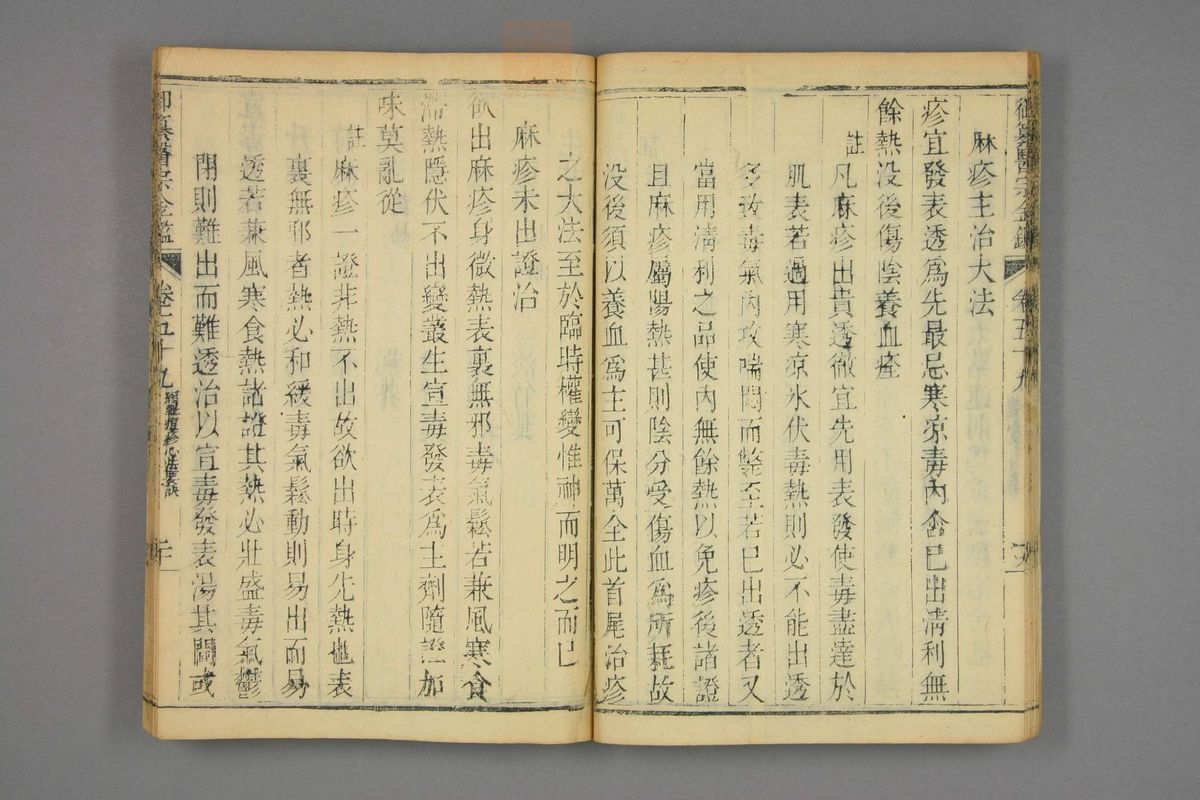 御纂醫宗金鑑 卷五十九
麻疹主治大法
疹宜發表透爲先最忌寒涼毒內含已出清利無
餘熱没後傷陰養血痊
註凡麻疹出貴透徹宜先用表發使毒盡達於
肌表若過用寒涼氷伏毒熱則必不能出透
多致毒氣內攻喘悶而斃至若已出透者又
當用清利之品使內無餘熱以免疹後諸證
且麻疹屬陽熱甚則陰分受傷血爲所耗故
没後須以養血爲主可保萬全此首尾治疹
之大法至於臨時權變惟神而明之而已
麻疹未出證治
欲出麻疹身微熱表裏無邪毒氣鬆若兼風寒食
滯熱隱伏不出變叢生宣毒發表爲主劑隨證加
味莫亂從
註麻疹一證非熱不出故欲出時身先熱也表
裏無邪者熱必和緩毒氣鬆動則易出而易
透若兼風寒食熱諸證其熱必壯盛毒氣鬱
閉則難出而難透治以宣毒發表湯其間或
御纂醫宗金鑑 卷五十九 編輯痘疹心法要訣